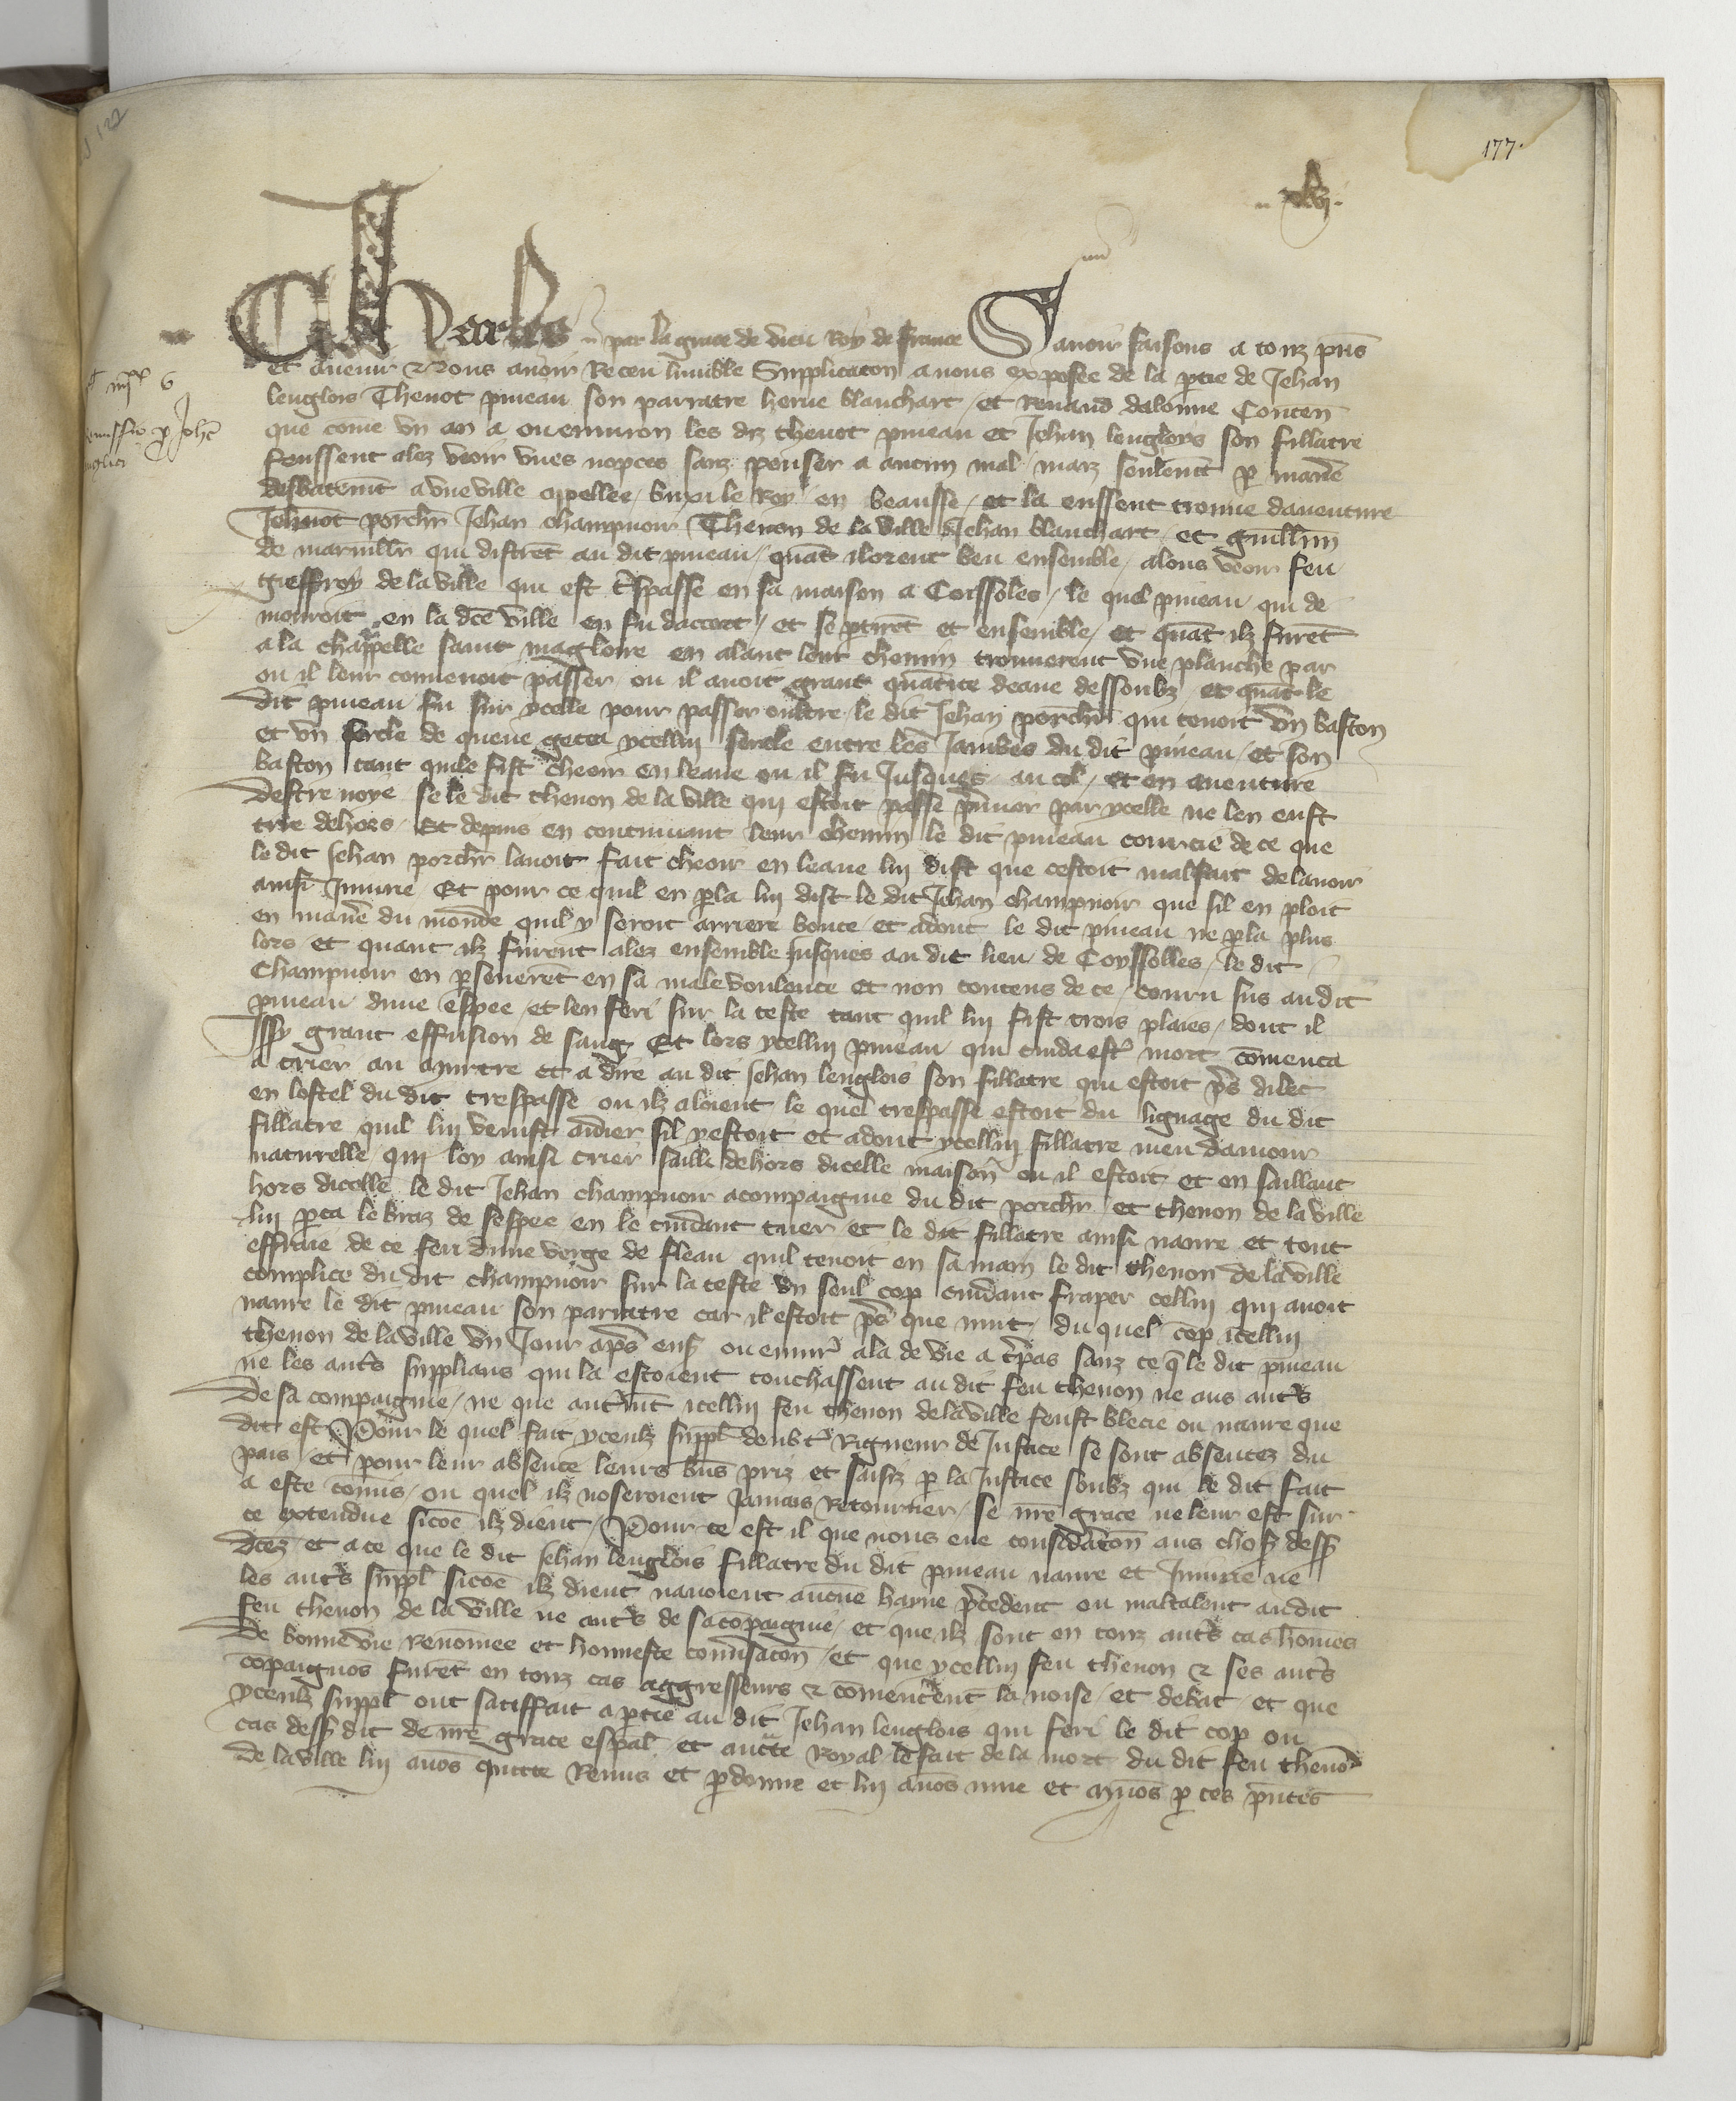 177
Charles par la grace de dieu Roy de france Sauoir faisons a touz pñs
et auenir Nous auoir Receu lumble Supplicacon a nous exposee de la ptie de Jehan
lenglois Thenot pineau son parratre herue blanchart et Renaud dalonne Conten
que come vn an a ou enuiron les diz thenot pineau et Jehan lenglois son fillatre
feussent alez veoir vnes nopces sanz penser a aucun mal maiz seulemt p manie
desbatemt a vne ville appellee le Roy en beausse et la eussent trouue dauenture
Jehanot porchr Jehan champnoir Thenon de la ville Jehan blanchart et guillmin
de qui distret au dit pineau quat ilorent beu ensemble alons veoir feu
gieffroy de la ville qui est tspasse en sa maison a Coissoles le quel pineau qui de
mouroit en la dce ville en fu daccort et se ptiret et ensemble et quat ilz furet
a la chappelle saint magloire en alant leur chemin trouuerent vne planche par
ou il leur conuenoit passer ou il auoit grant quatite deaue dessoubz et quat le
dit pineau fu sur ycelle pour passer oultre le dit Jehan porchr qui tenoit vn baston
et vn sercle de queue getta ycellui sercle entre les Jambes du dit pineau et son
baston tant quile fist cheoir en leaue ou il fu Jusques au col et en auenture
destre noye se le dit thenon de la ville qui estoit passe pmier par ycelle ne len eust
trie dehors Et depuis en continuant leur chemin le dit pineau courcie de ce que
le dit Jehan porchr lauoit fait cheoir en leaue lui dist que cestoit malfait de lauoir
ainsi Iniurie Et pour ce quil en pla lui dist le dit Jehan champnoir que sil en ploit
en manie du monde quil y seroit arriere boute et adont le dit pineau ne pla plus
lors et quant ilz furent alez ensemble Jusques au dit lieu de Coyssolles le dit
Champnoir en pseueret en sa male voulente et non contens de ce couru sus au dit
pineau dune espee et len feri sur la teste tant quil lui fist trois plaies dont il
Issy grant effusion de sang Et lors ycellui pineau qui cuida estr mort comenca
a crier au murtre et a dire au dit Jehan lenglois son fillatre qui estoit ps dilec
en lostel du dit trespasse ou ilz aloient le quel trespasse estoit du lignage du dit
fillatre quil lui venist aidier sil yestoit et adont ycellui fillatre meu damour
naturelle qui loy ainsi crier sailli dehors dicelle maison ou il estoit et en saillant
hors dicelle le dit Jehan champnoir acompaignie du dit porchr et thenon de la ville
lui pca le braz de sespee en le cuidant tuer et le dit fillatre ainsi naure et tout
effraie de ce feri dune verge de fleau quil tenoit en sa main le dit thenon de la ville
complice du dit champnoir sur la teste vn seul cop cuidant fraper cellui qui auoit
naure le dit pineau son parratre car il estoit ps que nuit du quel cop icellui
thenon de la ville vn Jour aps ens ou enuir ala de vie a tpas sanz ce q le dit pineau
ne les auts supplians qui la estoient touchassent au dit feu thenon ne aus auts
de sa compaignie ne que autmt icellui feu thenon de la ville feust blecie ou naure que
dit est Pour le quel fait yceulz suppl doubt Rigueur de Justice se sont absentez du
pais et pour leur absence leurs bns priz et saisiz p la Justice soubz qui le dit fait
a este comis ou quel ilz noseroient Jamais Retourner se nre grace ne leur est sur
ce extendue sicoe ilz dient Pour ce est il que nous eue considacon aus chos dess
dcez et a ce que le dit Jehan lenglois fillatre du dit pineau naure et Iniurie ne
les auts suppl sicoe ilz dient nauoient aucune hayne pcedent ou maltalent au dit
feu thenon de la ville ne auts de sa copaignie et que ilz sont en touz auts cas homes
de bonne vie renomee et honneste conusacon et que ycellui feu thenon & ses auts
copaignos furet en touz cas aggresseurs & comencerent la noise et debat et que
yceulz suppl ont satiffait a ptie au dit Jehan lenglois qui feri le dit cop ou
cas dess dit de nre grace espal et aucte Royal le fait de la mort du dit feu theno
de la ville lui auos quicte Remis et pdonne et lui auos mue et muos p ces pntes